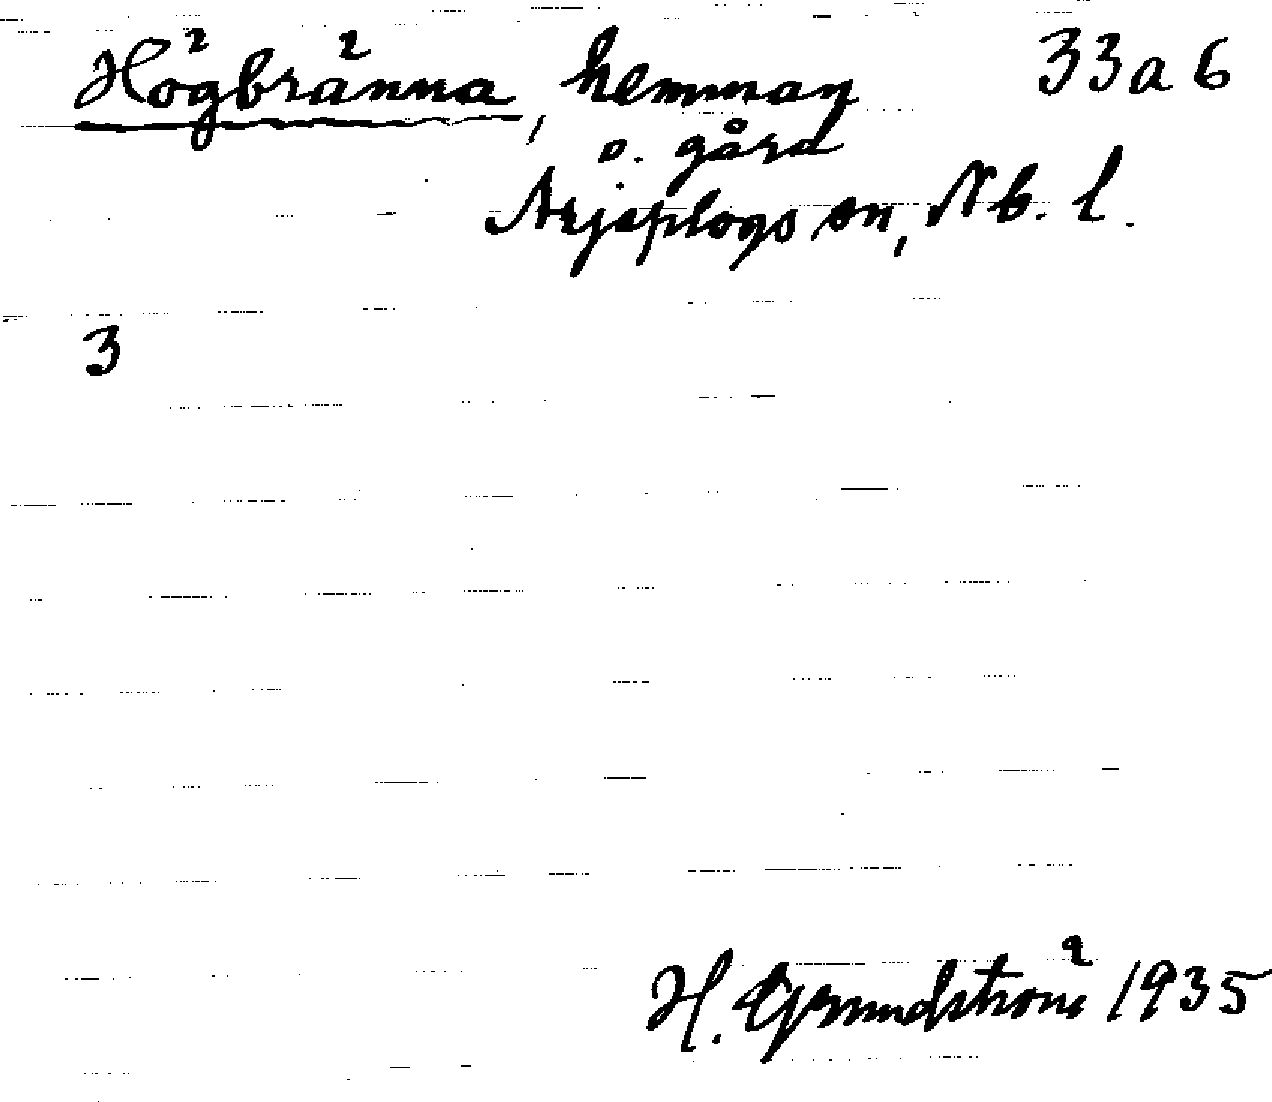 Högbränna, hemman 33a6
o. gård
Arjeplogs sn, Nb. l.
3
H. Grundström 1935